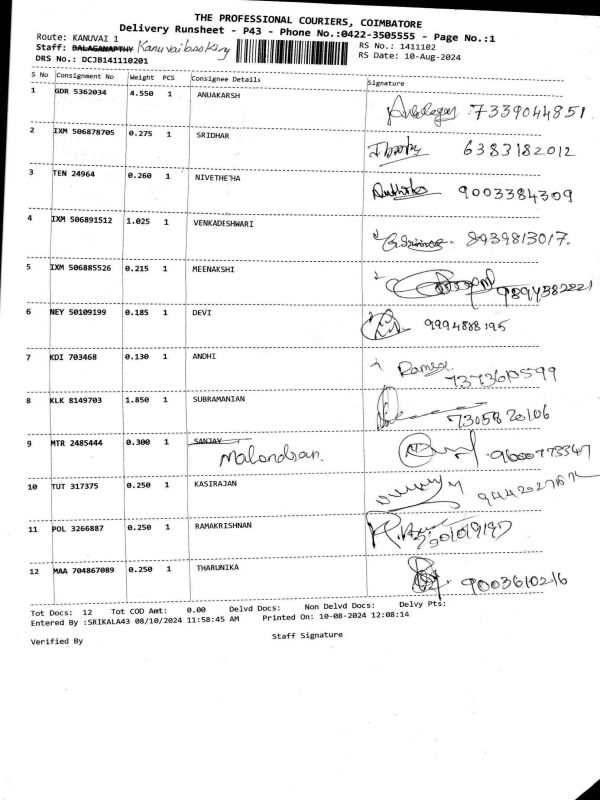 THE PROFESSIONAL COURIERS, COIMBATORE
Delivery Runsheet - P43 - Phone No.:0422-3505555 - Page No.:1
Route: KANUVAI 1
Staff: BALAGANAPTHY Kanuvai booking
RS No.: 1411102
DRS No.: DCJB141110201
RS Date: 10-Aug-2024
S No Consignment No Weight PCS Consignee Details Signature
1 GDR 5362034 4.550 1 ANUAKARSH :7339044851
2 IXM 506878705 0.275 1 SRIDHAR 6383182012
3 TEN 24964 0.260 1 NIVETHETHA 9003384309
4 IXM 506891512 1.025 1 VENKADESHWARI 8939813017.
5 IXM 506885526 0.215 1 MEENAKSHI
6 NEY 50109199 0.185 1 DEVI
7 KDI 703468 0.130 1 ANDHI Ramesh
8 KLK 8149703 1.850 1 SUBRAMANIAN
9 MTR 2485444 0.300 1 SANJAY
10 TUT 317375 0.250 1 KASIRAJAN
11 POL 3266887 0.250 1 RAMAKRISHNAN
12 MAA 704867089 0.250 1 THARUNIKA 9003610216
Tot Docs: 12 Tot COD Amt: 0.00 Delvd Docs: Non Delvd Docs: Delvy Pts:
Entered By :SRIKALA43 08/10/2024 11:58:45 AM Printed On: 10-08-2024 12:08:14
Verified By Staff Signature